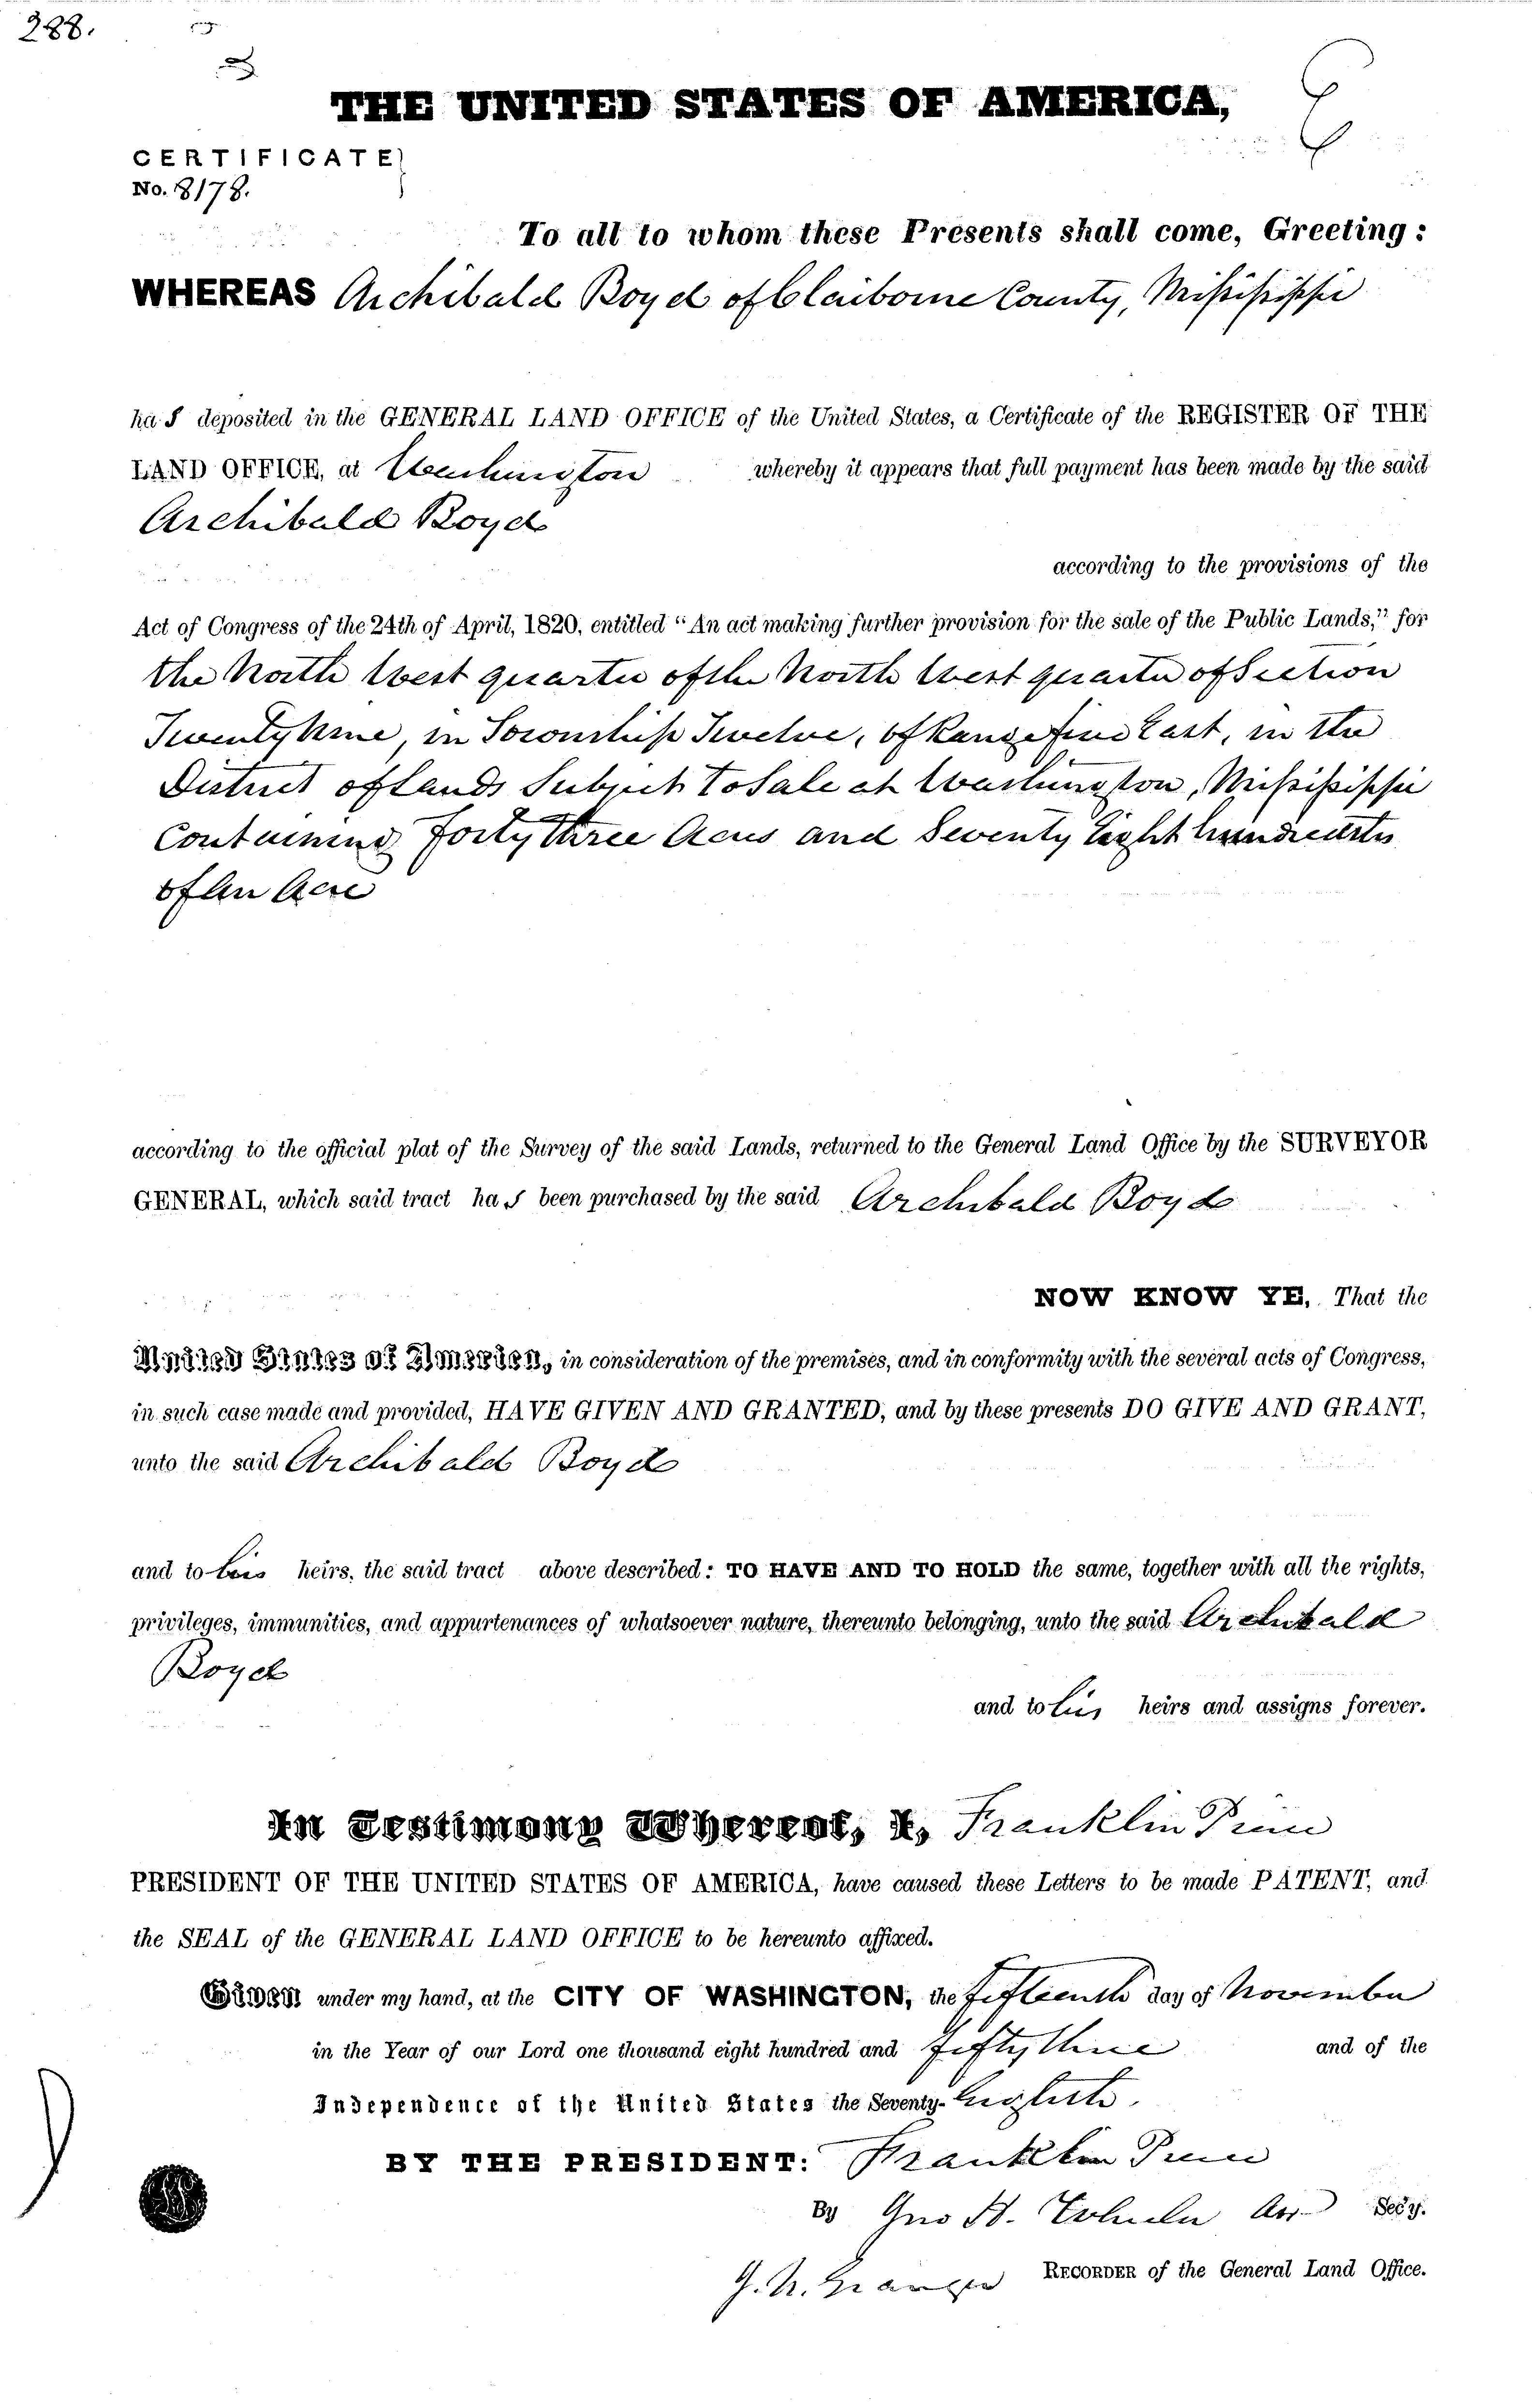 288.
THE UNITED STATES OF AMERICA,
CERTIFICATE
No. 8178.
To all to whom these Presents shall come, Greeting:
WHEREAS Archibald Boyd of Claiborne County, Mississippi
has deposited in the GENERAL LAND OFFICE of the United States, a Certificate of the REGISTER OF THE
LAND OFFICE, at Washington whereby it appears that full payment has been made by the said
Archibald Boyd
according to the provisions of the
Act of Congress of the 24th of April, 1820, entitled "An act making further provision for the sale of the Public Lands," for
the North West quarter of the North West quarter of Section
Twenty nine, in Township Twelve, of Range five East, in the
District of Lands Subject to Sale at Washington, Mississippi
Containing forty three Acres and Seventy Eight hundredths
of an Acre
according to the official plat of the Survey of the said Lands, returned to the General Land Office by the SURVEYOR
GENERAL, which said tract has been purchased by the said Archibald Boyd
NOW KNOW YE, That the
United States of America, in consideration of the premises, and in conformity with the several acts of Congress,
in such case made and provided, HAVE GIVEN AND GRANTED, and by these presents DO GIVE AND GRANT,
unto the said Archibald Boyd
and to his heirs, the said tract above described: TO HAVE AND TO HOLD the same, together with all the rights,
privileges, immunities, and appurtenances of whatsoever nature, thereunto belonging, unto the said Archibald
Boyd
and to his heirs and assigns forever.
In Testimony Whereof, I, Franklin Pierce
PRESIDENT OF THE UNITED STATES OF AMERICA, have caused these Letters to be made PATENT, and
the SEAL of the GENERAL LAND OFFICE to be hereunto affixed.
Given under my hand, at the CITY OF WASHINGTON, the fifteenth day of November
in the Year of our Lord one thousand eight hundred and fifty three and of the
Independence of the United States the Seventy-Eighth.
BY THE PRESIDENT: Franklin Pierce
By Secy.
RECORDER of the General Land Office.